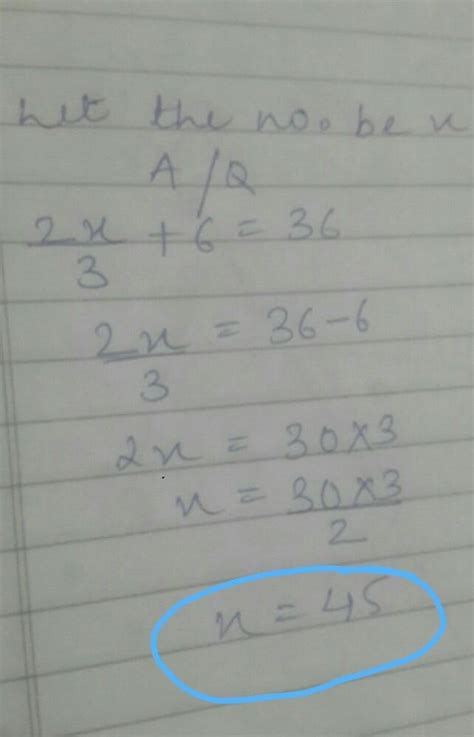 Let the no. be x
A/Q
2x/3 + 6 = 36
2x/3 = 36-6
2x = 30×3
x = 30×3/2
x = 45